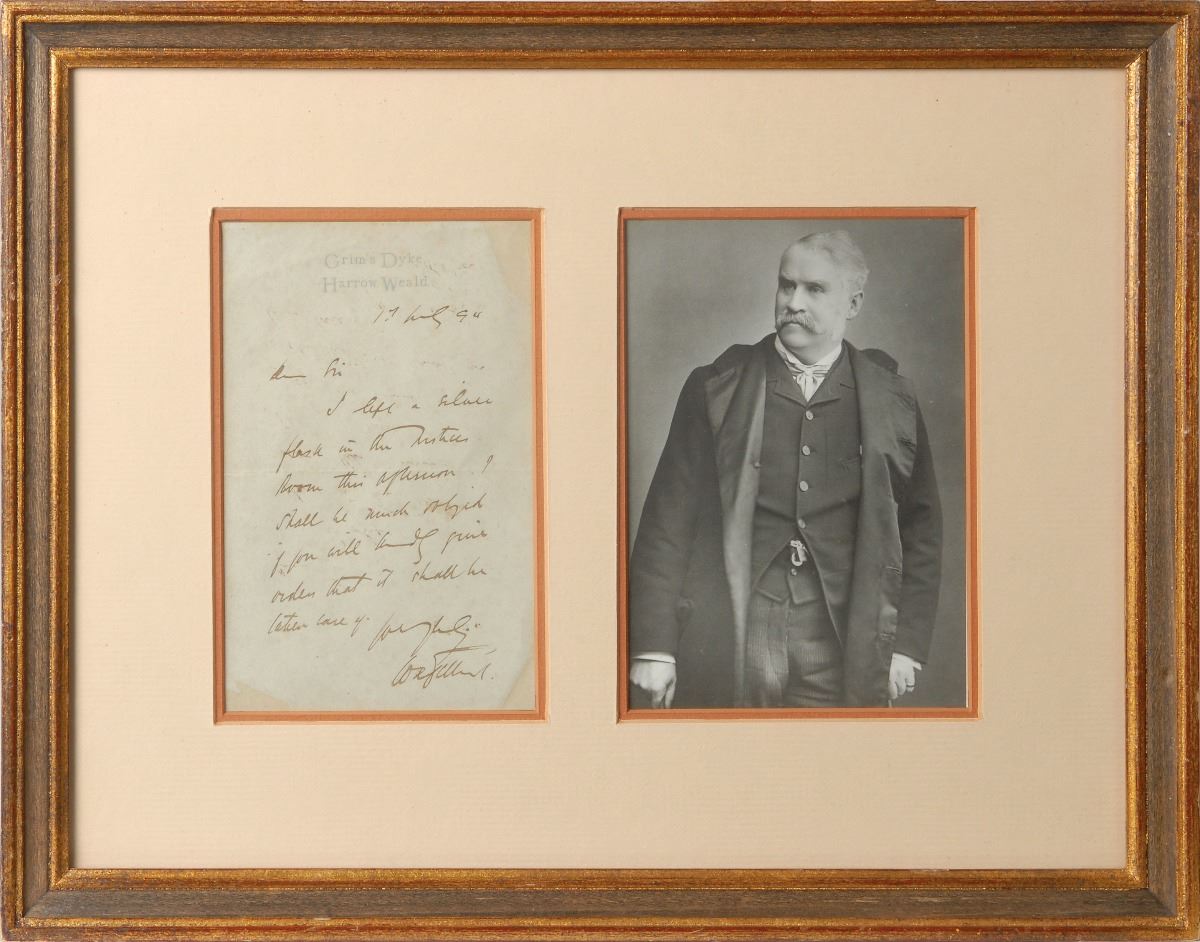 Grim's Dyke,
Harrow Weald.
July 94
Dear Sir
I left a silver
flask in the Justices
Room this afternoon. I
shall be much obliged
if you will kindly give
orders that it shall be
taken care of.
Yours truly
WSGilbert.